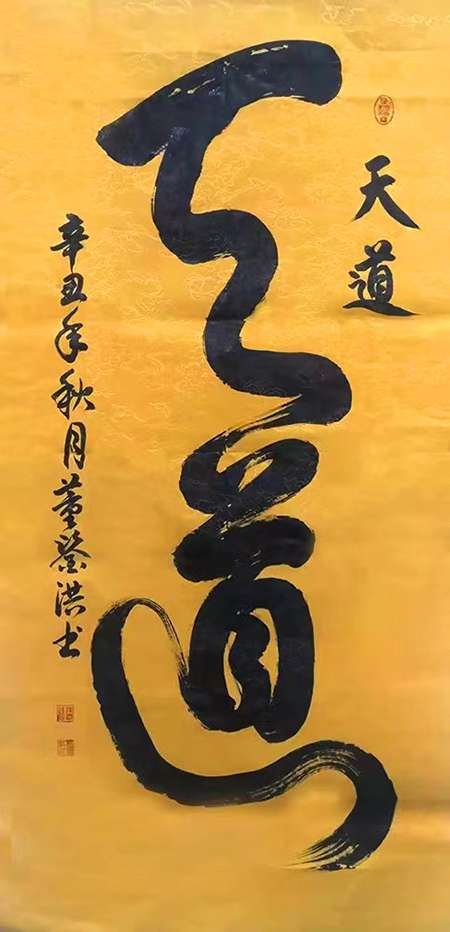 天道
天道
辛丑年秋月董荣洪书